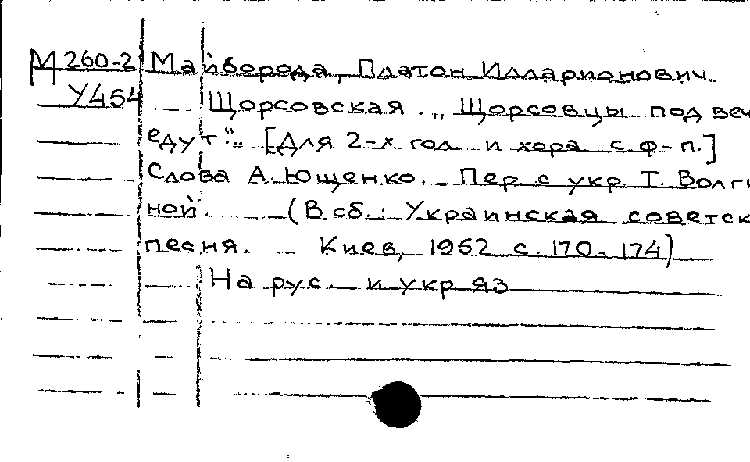 М 260-2 Майборода, Платон Илларионович.
У454 Щорсовская. „Щорсовцы под веч
едут“.. [Для 2-х гол и хора с. ф-п.]
Слова А. Ющенко. - Пер с укр Т. Волги
ной. - (В сб.: Украинская советск
песня. - Киев, 1962 с. 170-174)
На рус. и укр яз